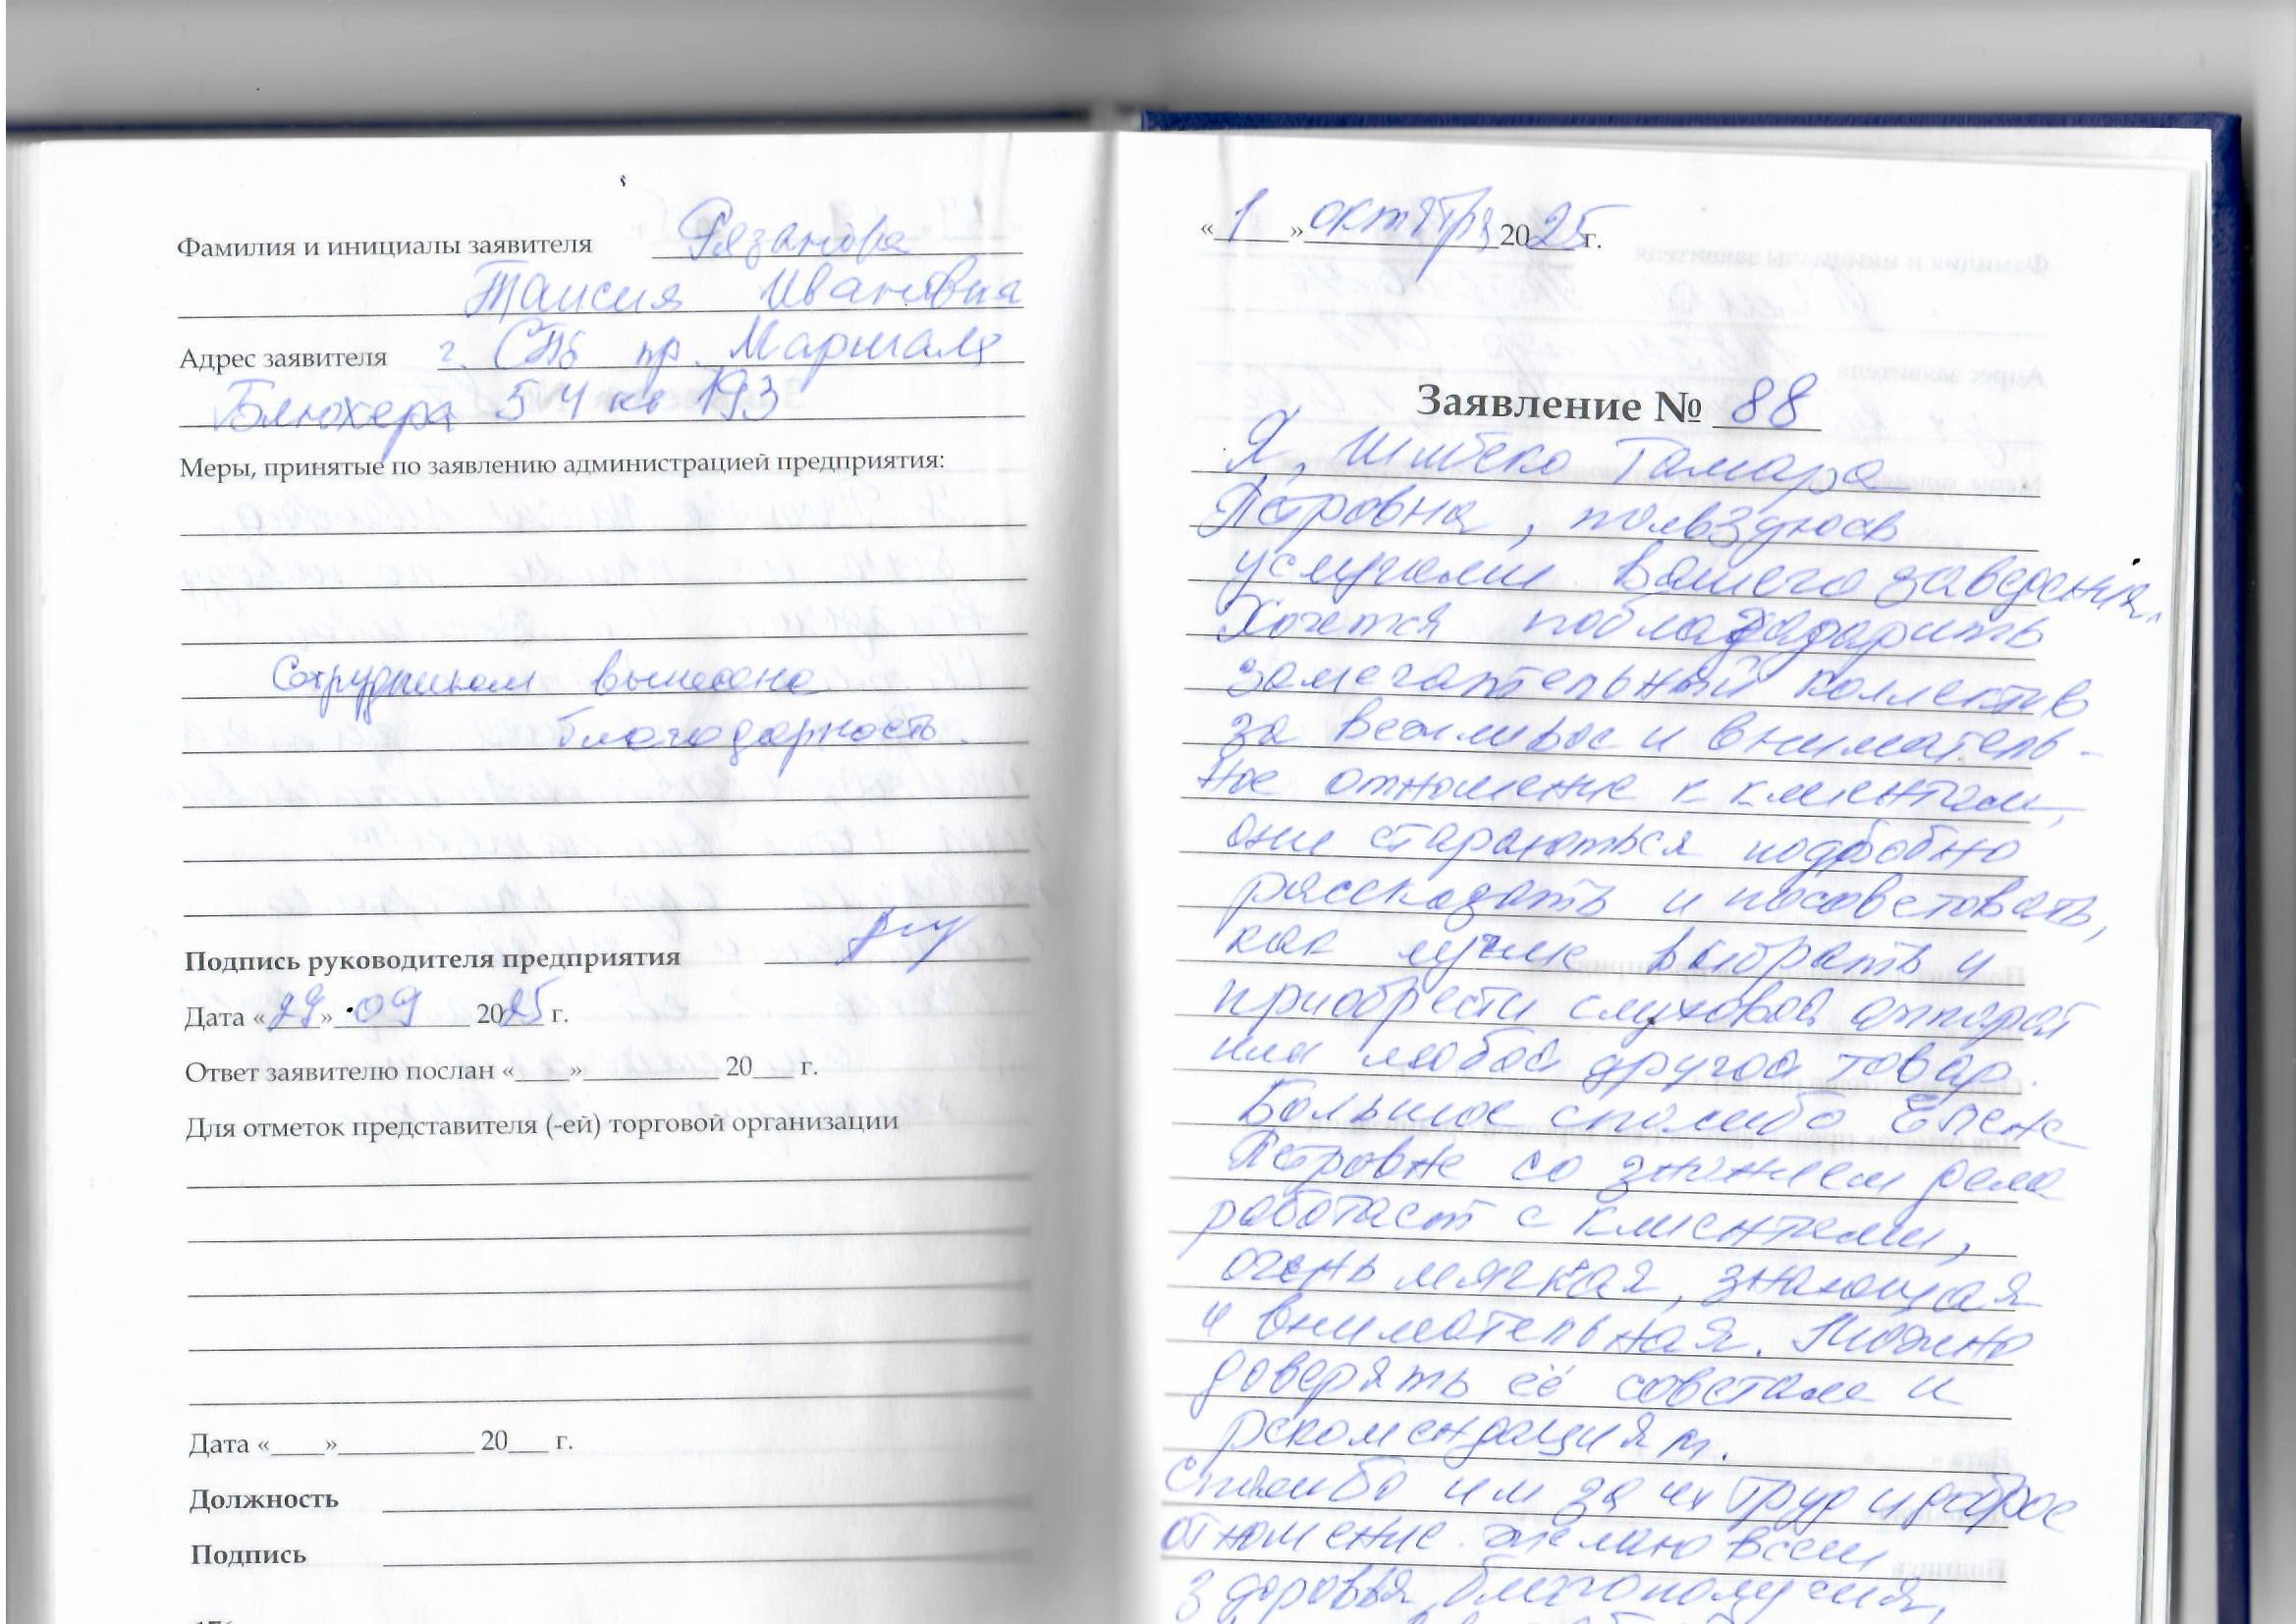 Фамилия и инициалы заявителя Рязанова
Таисия Ивановна
Адрес заявителя г. СПб пр. Маршала
Блюхера 54 кв 193
Меры, принятые по заявлению администрацией предприятия:
Сотрудникам вынесена
благодарность.
Подпись руководителя предприятия
Дата «29» 09 2025 г.
Ответ заявителю послан «____»__________ 20___ г.
Для отметок представителя (-ей) торговой организации
Дата «____»__________ 20___ г.
Должность
Подпись
«1» октября 2025 г.
Заявление № 88
Я, Тамара
Петровна, пользуюсь
услугами вашего заведения.
Хочется поблагодарить
замечательный коллектив
за вежливое и вниматель-
ное отношение к клиентам,
они стараються подробно
рассказать и посоветовать,
как лучше выбрать и
приобрести слуховой аппарат
или любой другой товар.
Большое спасибо Елене
Петровне со знанием дела
работает с клиентами,
очень мягкая, знающая
и внимательная. Можно
доверять её советам и
рекомендациям.
Спасибо им за их труд и доброе
отношение. Желаю всем
здоровья, благополучия,